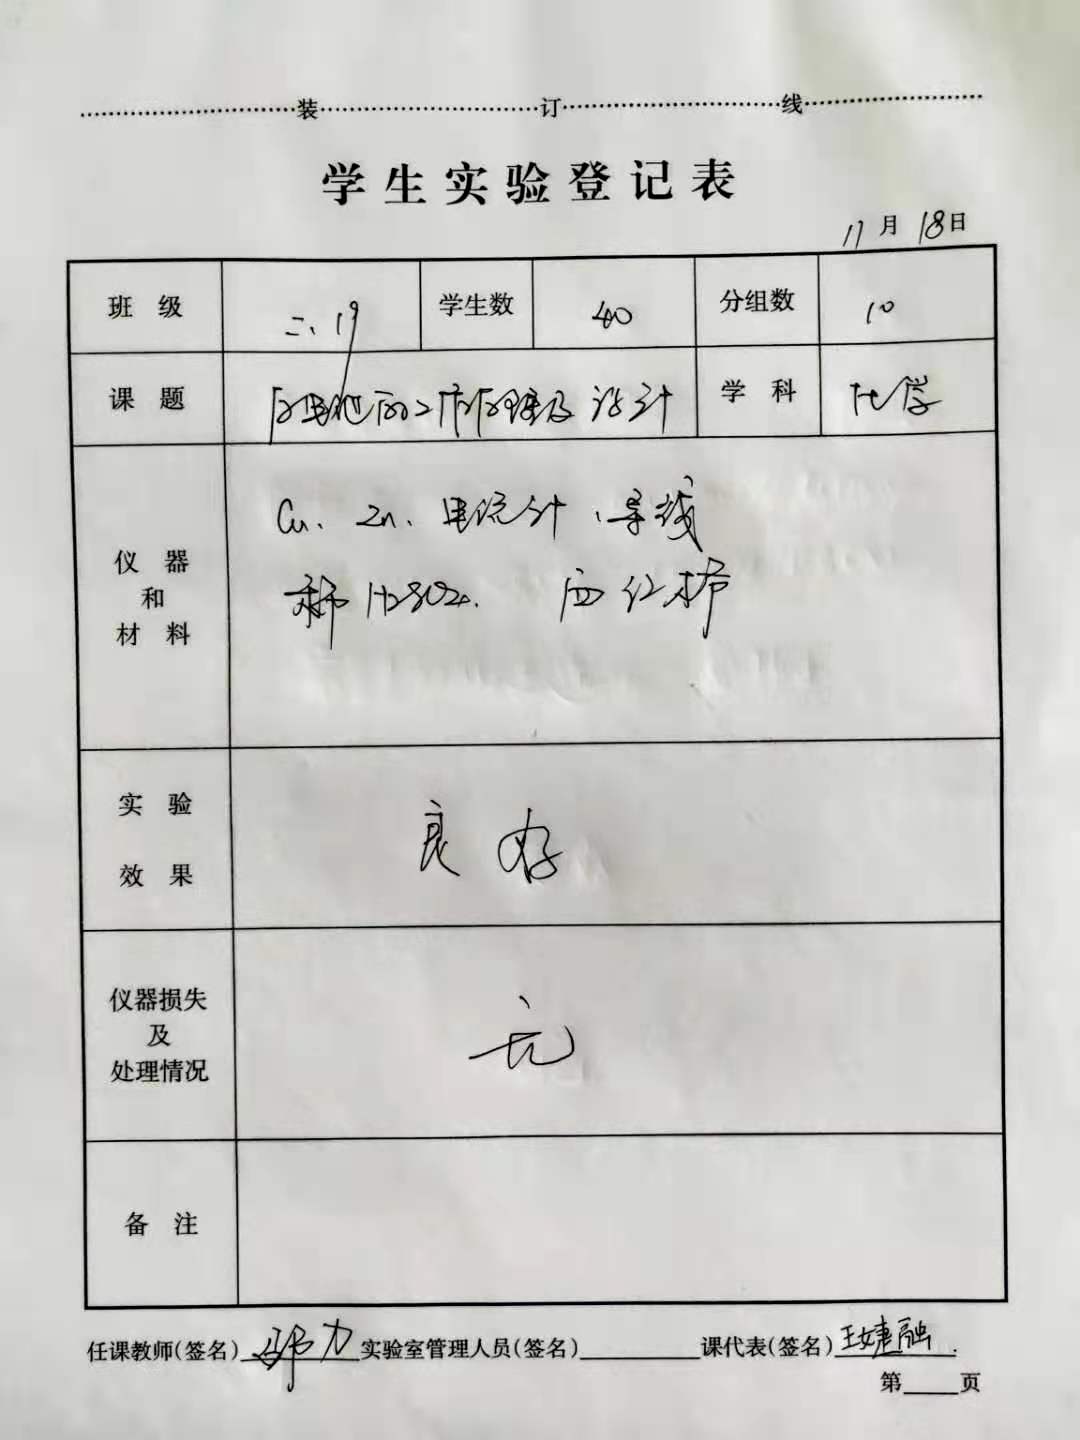 装 订 线
学生实验登记表
11月18日
班级 二、19 学生数 40 分组数 10
课题 原电池的工作原理及设计 学科 化学
仪器和材料 Cu、Zn、电流计、导线
稀H2SO4. 西红柿
实验效果 良好
仪器损失及处理情况 无
备注
任课教师(签名) 力 实验室管理人员(签名) 课代表(签名) 王婕融
第 页